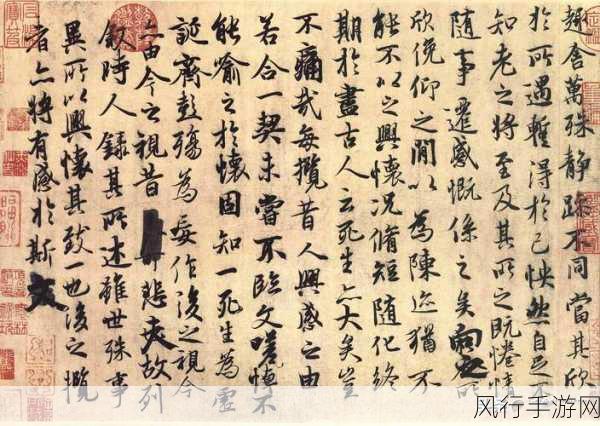 趣舍萬殊静躁不同當其欣
於所遇蹔得於己怏然自足不
知老之將至及其所之既惓情
隨事遷感慨係之矣向之所
欣俛仰之閒以為陳迹猶不
能不以之興懷況脩短隨化終
期於盡古人云死生亦大矣豈
不痛哉每攬昔人興感之由
若合一契未嘗不臨文嗟悼不
能喻之於懷固知一死生為虛
誕齊彭殤為妄作後之視今
亦由今之視昔悲夫故列
敘時人錄其所述雖世殊事
異所以興懷其致一也後之攬
者亦將有感於斯文
风行手游网